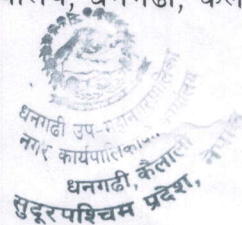 धनगढी, कैल
धनगढी उप-महानगरपालिका
नगर कार्यपालिकाको कार्यालय
धनगढी, कैलाली
सुदूरपश्चिम प्रदेश, नेपाल